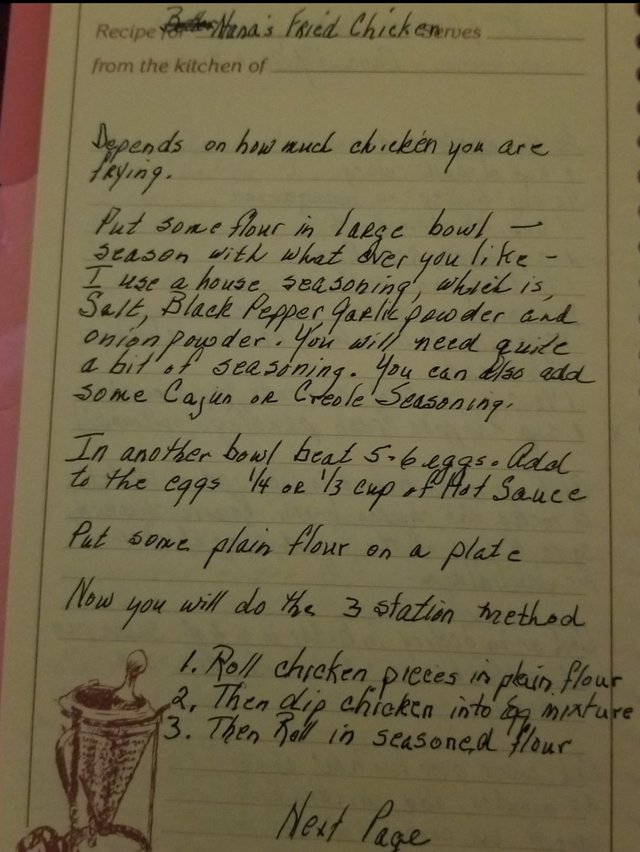 Recipe for Nana's Fried Chicken Serves
from the kitchen of
Depends on how much chicken you are
frying.
Put some flour in large bowl —
season with what ever you like -
I use a house seasoning, which is,
Salt, Black Pepper Garlic powder and
onion powder. You will need quite
a bit of seasoning. You can also add
some Cajun or Creole Seasoning.
In another bowl beat 5-6 eggs. Add
to the eggs 1/4 or 1/3 cup of Hot Sauce
Put some plain flour on a plate
Now you will do the 3 station method
1. Roll chicken pieces in plain flour
2. Then dip chicken into Egg mixture
3. Then Roll in seasoned flour
Next Page